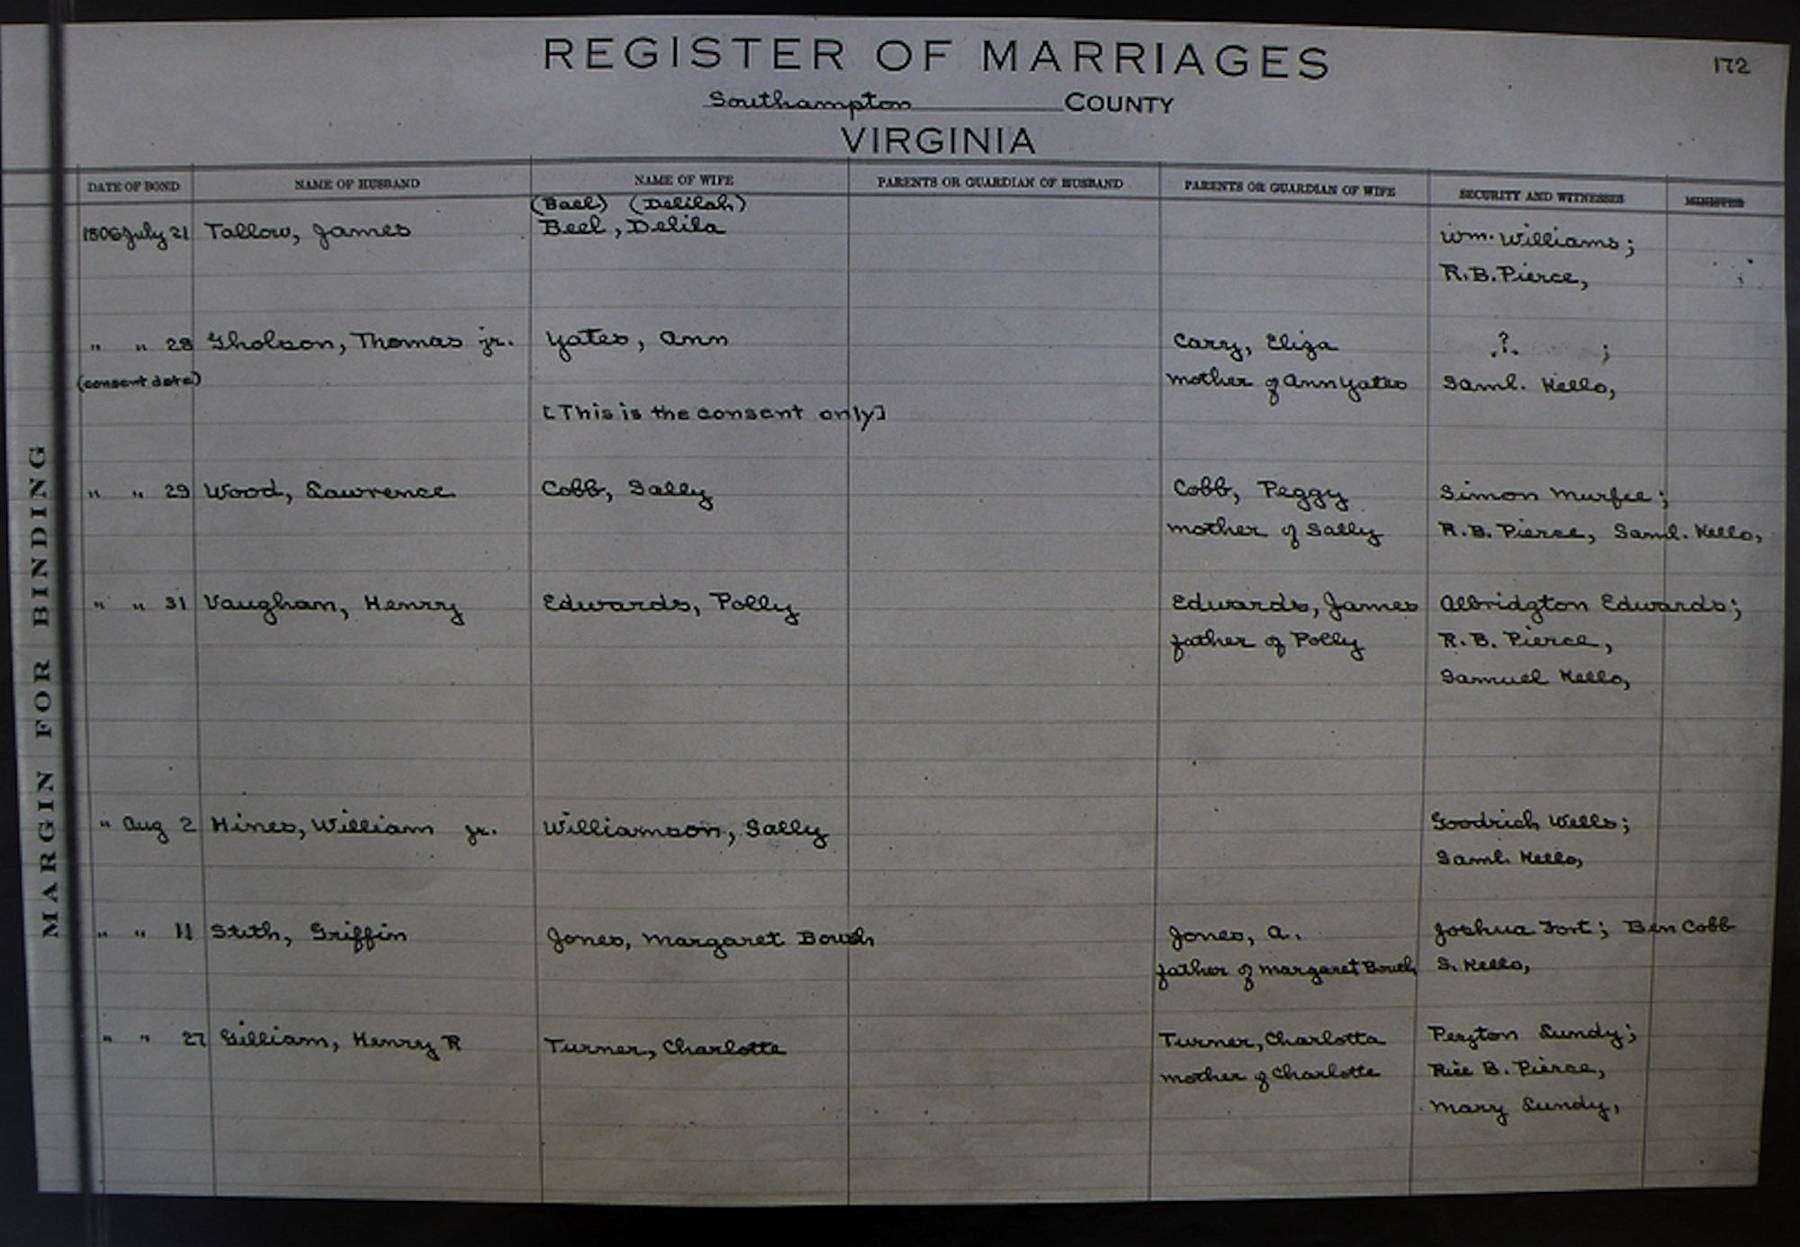 REGISTER OF MARRIAGES
172
Southampton COUNTY
VIRGINIA
DATE OF BOND NAME OF HUSBAND NAME OF WIFE PARENTS OR GUARDIAN OF HUSBAND PARENTS OR GUARDIAN OF WIFE SECURITY AND WITNESSES MINISTER
(Bael) (Delilah)
1806 July 21 Tallow, James Beel, Delila Wm. Williams;
R.B. Pierce,
" " 28 Gholson, Thomas jr. Yates, Ann Cary, Eliza ? ;
(consent date) mother of Ann Yates Saml. Kello,
[This is the consent only]
" " 29 Wood, Lawrence Cobb, Sally Cobb, Peggy Simon Murfee;
mother of Sally R.B. Pierce, Saml. Kello,
" " 31 Vaughan, Henry Edwards, Polly Edwards, James Albridgton Edwards;
father of Polly R. B. Pierce,
Samuel Kello,
" Aug 2 Hines, William jr. Williamson, Sally Goodrich Wells;
Saml. Kello,
" " 11 Stith, Griffin Jones, Margaret Bouth Jones, A. Joshua Fort; Ben Cobb
father of Margaret Bouth S. Kello,
" " 27 Gilliam, Henry R Turner, Charlotte Turner, Charlotta Peyton Lundy;
mother of Charlotte Rice B. Pierce,
Mary Lundy,
MARGIN FOR BINDING